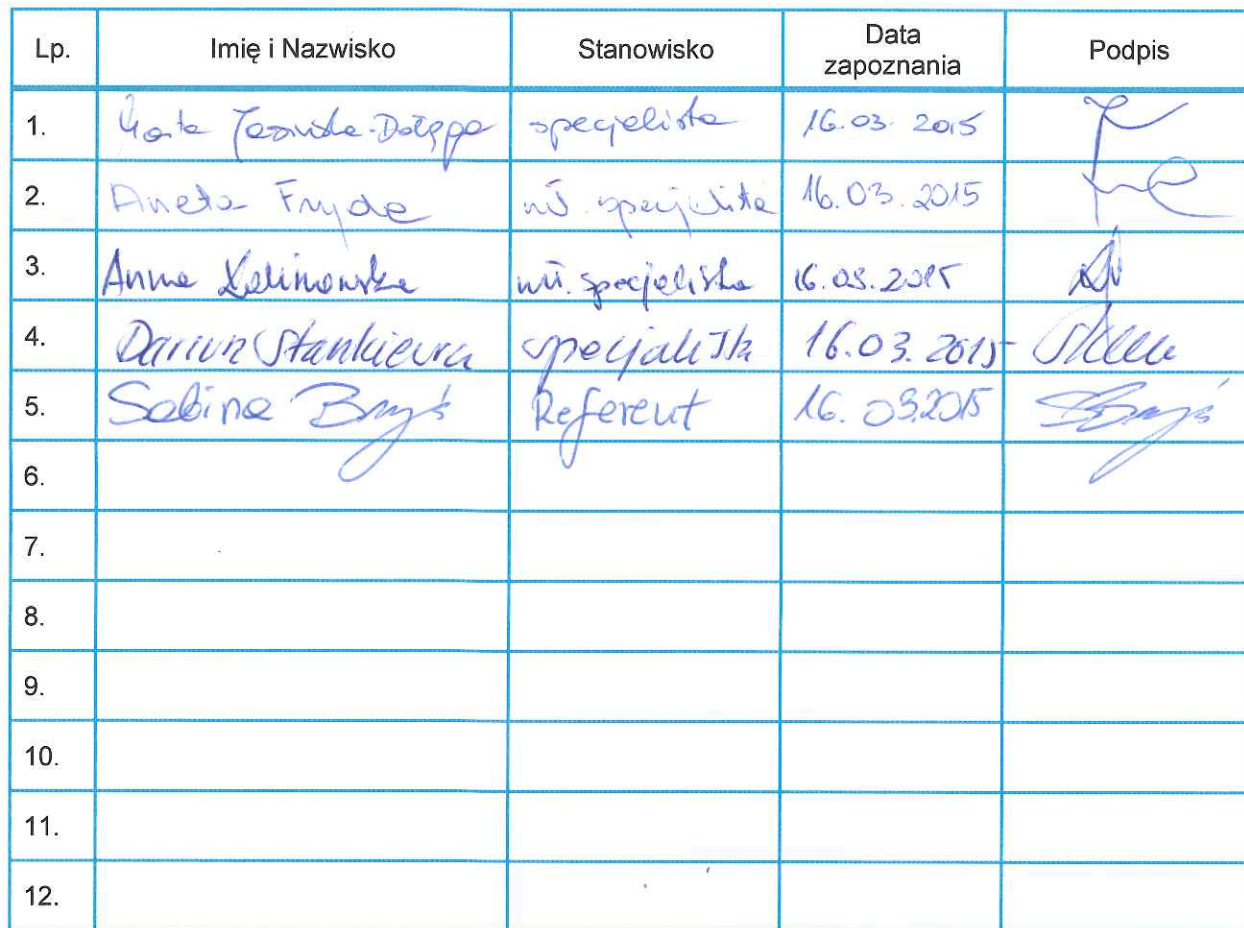 Lp. Imię i Nazwisko Stanowisko Data zapoznania Podpis
1. specjalista 16.03.2015
2. Aneta Fryda mł. specjalista 16.03.2015
3. Anna Kalinowska mł. specjalista 16.03.2015
4. Dariusz Stankiewicz specjalista 16.03.2015
5. Sabina Bryś Referent 16.03.2015
6.
7.
8.
9.
10.
11.
12.